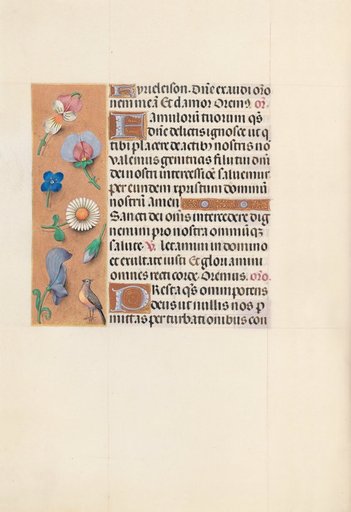 Kyrieleison. Dñe exaudi or̃o
nem meã Et clamor Orem9. or̃.
Famulorũ tuorum qs̃
dñe delictis ignosce ut q
tibi placere de actibꝫ nostris nõ
valemus genitricis filii tui dñi
dei nostri intercessiõe saluemur
per eundem xpristum dominũ
nostrũ amen
Sancti dei om̃s intercedere dig
nemini pro nostra omniũqꝫ
salute. V̷ letamini in domino
et exultate iusti Et gloriamini
omnes recti corde. Oremus. or̃o.
Presta qs̃ omnipotens
deus ut nullis nos p
mittas perturbationibus con